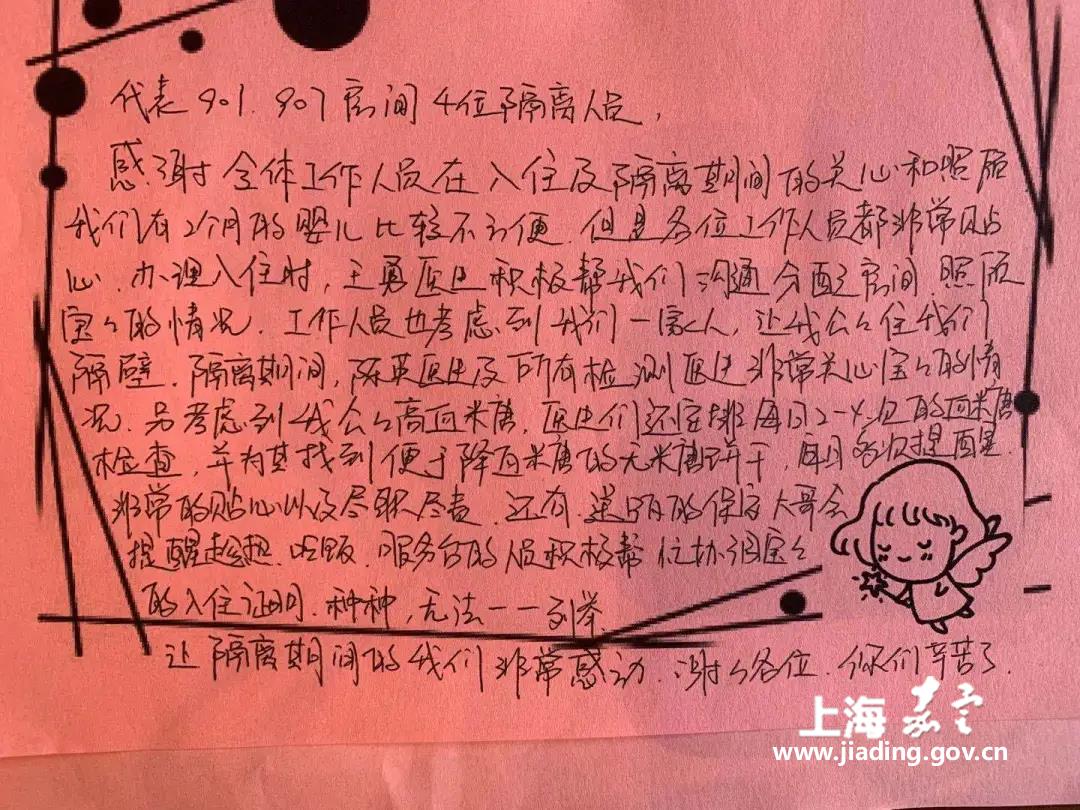 代表901.907房间4位隔离人员,
感谢全体工作人员在入住及隔离期间的关心和照顾
我们有2个月的婴儿比较不方便.但是各位工作人员都非常贴
心.办理入住时,王勇医生积极帮我们沟通分配房间照顾
宝宝的情况.工作人员也考虑到我们一家人,让我公公住我们
隔壁.隔离期间,陈英医生及所有检测医生非常关心宝宝的情
况.另考虑到我公公高血糖.医生们还安排每日2-4次的血糖
检查,并为其找到便于降血糖的无糖饼干,每日多次提醒.
非常的贴心以及尽职尽责.还有 的保安大哥会
提醒趁热吃饭.服务台的人员积极帮忙协调宝宝
的入住证明.种种,无法一一列举.
让隔离期间的我们非常感动.谢谢各位.你们辛苦了.
上海嘉定
www.jiading.gov.cn